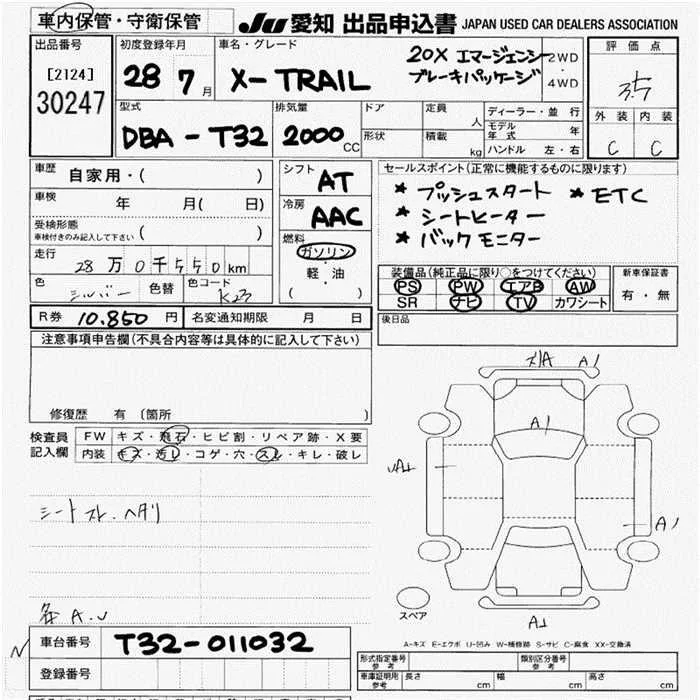 車内保管・守衛保管
JU 愛知 出品申込書 JAPAN USED CAR DEALERS ASSOCIATION
出品番号
[2124]
30247
初度登録年月
28 7月
車名・グレード
X-TRAIL
20X エマージェンシー
ブレーキパッケージ
2WD
・
4WD
評価点
3.5
外装 内装
C C
型式
DBA-T32
排気量
2000 CC
ドア
形状
定員 人
積載 kg
ディーラー・並行
モデル年式 年
ハンドル 左・右
車歴 自家用・( )
車検 年 月( 日)
受検形態
車検付きのみ記入して下さい ( )
走行 28万0千550km
色 シルバー 色替 色コード K23
シフト AT
冷房 AAC
燃料
ガソリン
・
軽・油
( )
セールスポイント(正常に機能するものに限ります)
★ プッシュスタート ★ ETC
★ シートヒーター
★ バックモニター
装備品(純正品に限り○をつけてください)
PS PW エアB AW
SR ナビ TV カワシート
新車保証書
有・無
R券 10.850 円 名変通知期限 月 日
後日品
注意事項申告欄(不具合内容等は具体的に記入して下さい)
修復歴 有 (箇所 )
検査員
記入欄
FW キズ・飛石・ヒビ割・リペア跡・X要
内装 キズ・汚レ・コゲ・穴・スレ・キレ・破レ
シートスレ・ヘタリ
各A.U
A1
A1
A1
スペア
A-キズ E-エクボ U-凹み W-補修跡 S-サビ C-腐食 XX-交換済
車台番号 T32-011032
登録番号
型式指定番号
参考
類別区分番号
参考
車庫証明用
参考
長さ cm 幅 cm 高さ cm